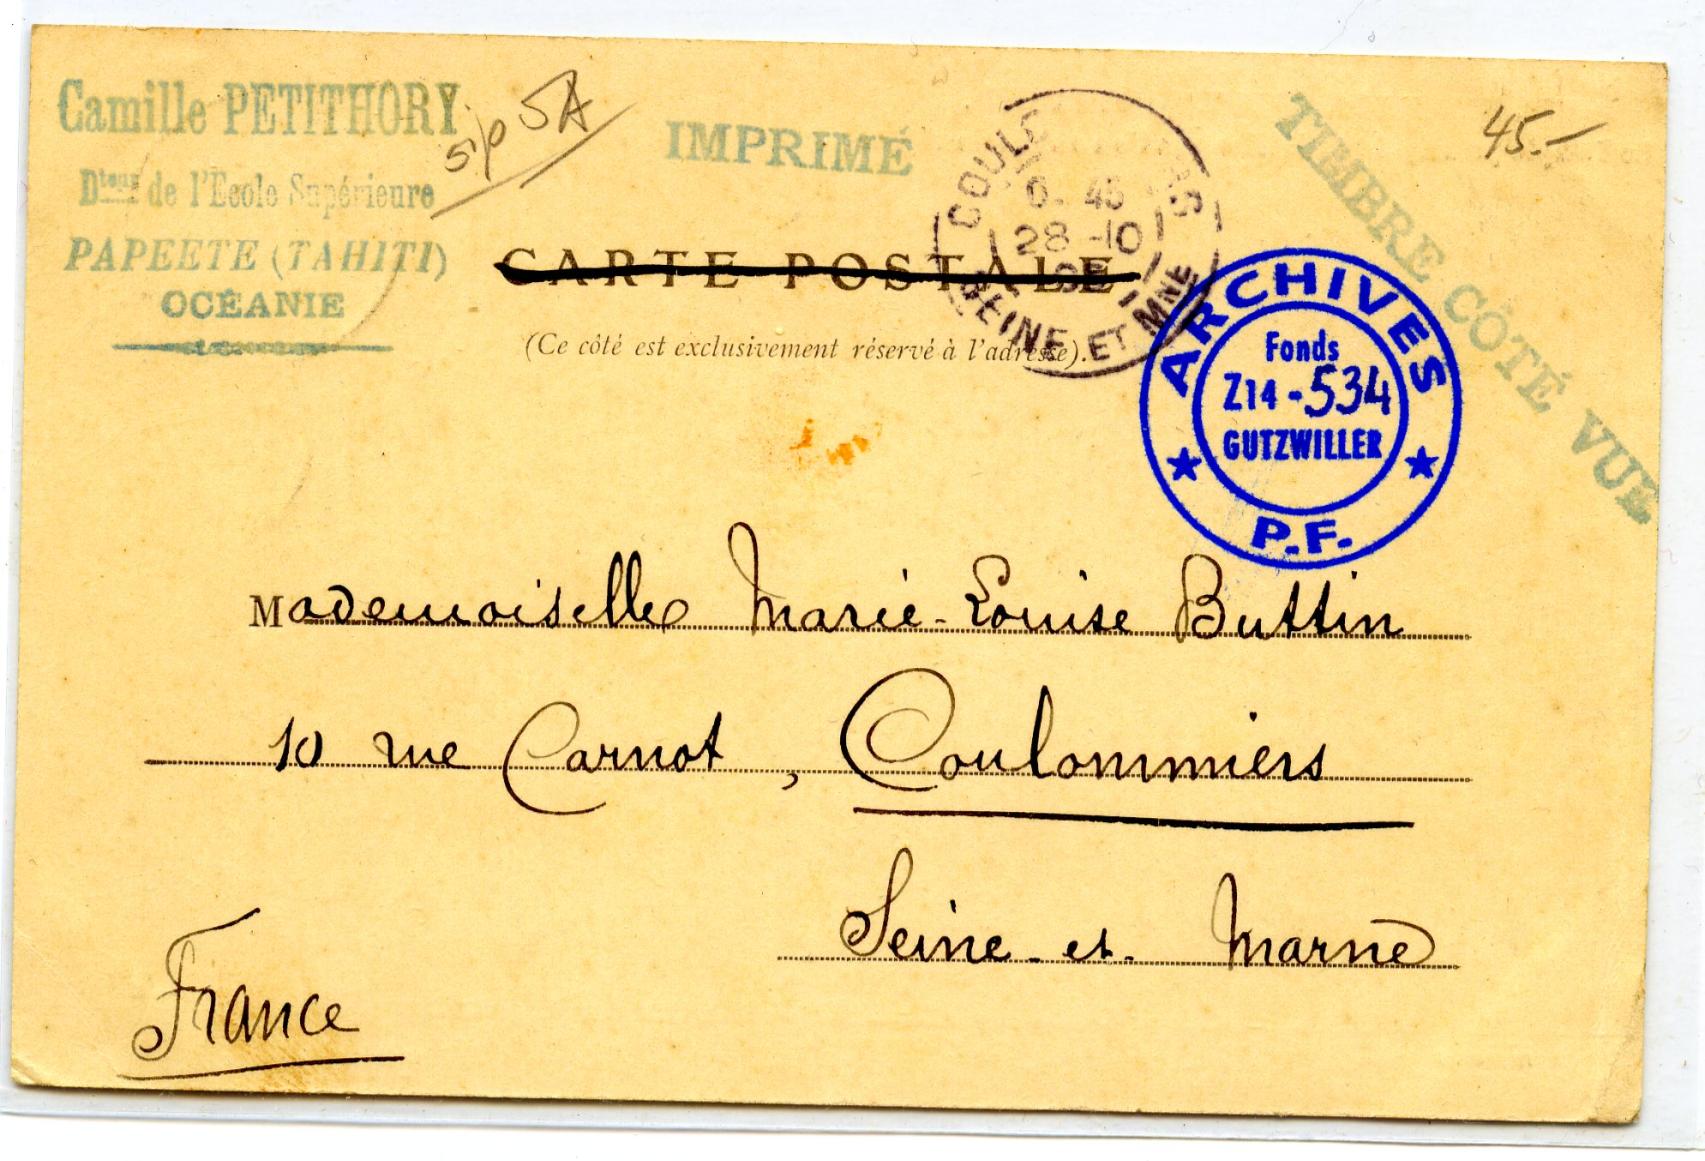 Camille PETITHORY
Dteur de l'École Supérieure
PAPEETE (TAHITI)
OCÉANIE
5A
IMPRIMÉ
TIMBRE CÔTÉ VUE
45.-
28 -10
SEINE ET MNE
CARTE POSTALE
(Ce côté est exclusivement réservé à l'adresse).
ARCHIVES
Fonds
Z14 - 534
GUTZWILLER
P.F.
Mademoiselle Marie-Louise Buttin
10 rue Carnot, Coulommiers
Seine-et-Marne
France